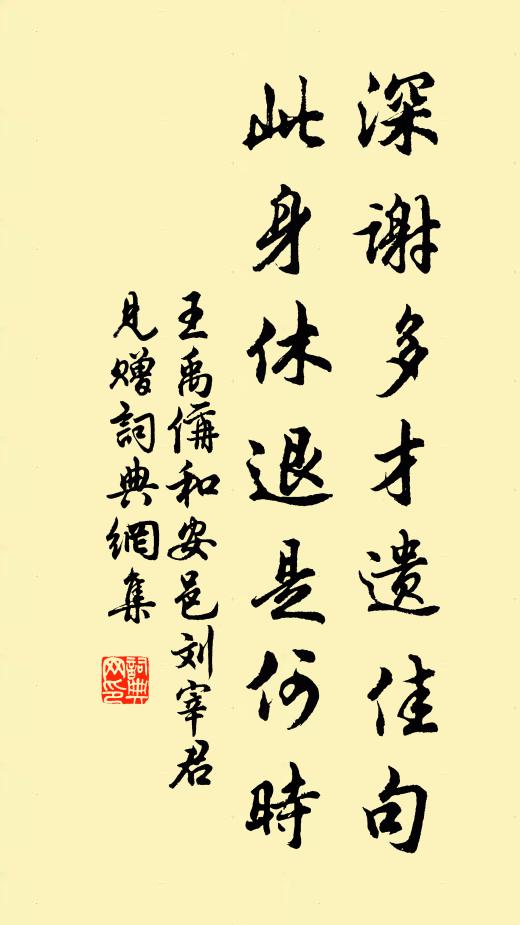 深谢多才遗佳句
此身休退是何時
王禹偁和安邑刘宰君
見赠詞典網集
詞典网印